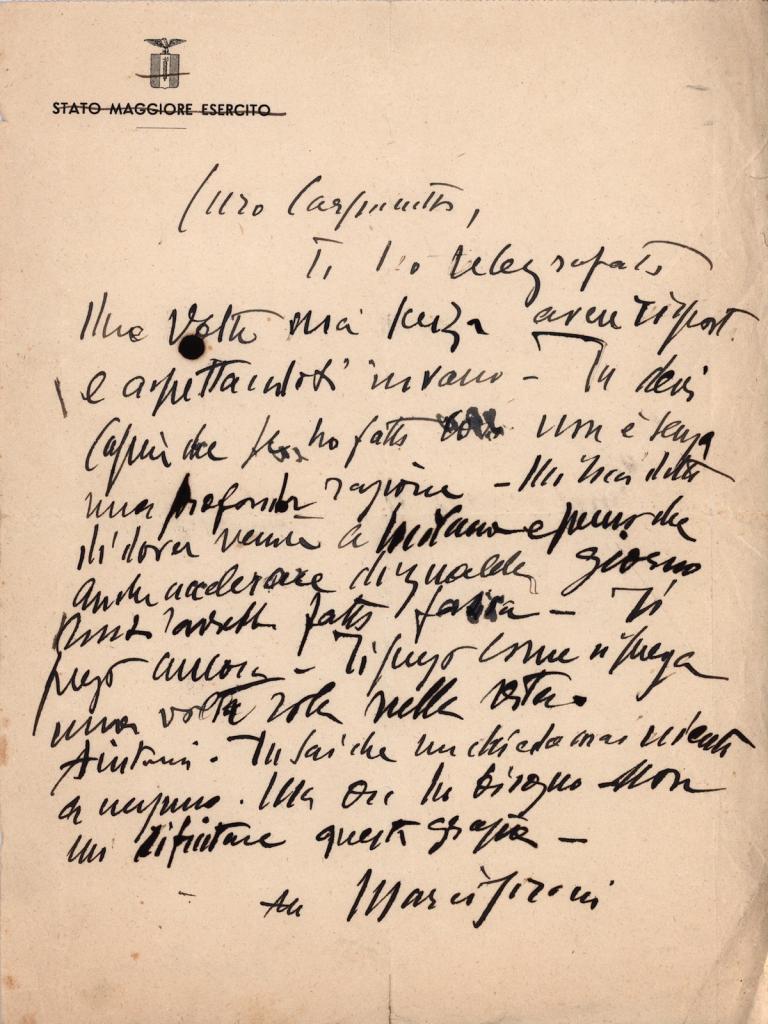 STATO MAGGIORE ESERCITO
Caro Carpinetti,
Ti ho telegrafato
una volta ma senza avere rispost.
e aspettandoti invano - Tu devi
capire che se ho fatto non è senza
una profonda ragione - Mi hai detto
di dover venire a Milano e penso che
anche accelerare di qualche giorno
avrebbe fatto - Ti
prego ancora - Ti prego come si prega
una volta sola nella vita
Aiutami. Tu sai che non chiedo mai niente
a nessuno. Ma ora ho bisogno non
mi rifiutare questa grazia -
tuo Mario Sironi